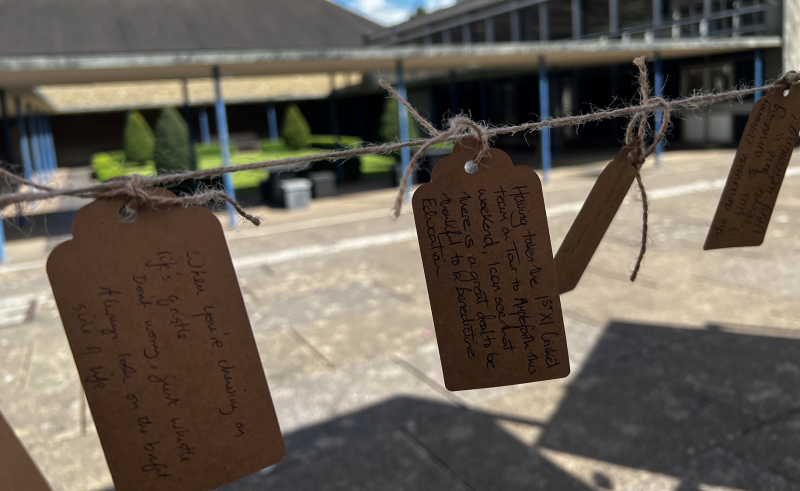 When you're chewing on
life's gristle
Don't worry, just whistle
Always look on the bright
side of life
Having taken the 1st XI Cricket
team on Tour to Ampleforth this
weekend, I can see that
there is a great deal to be
thankful to be benedictine
Education